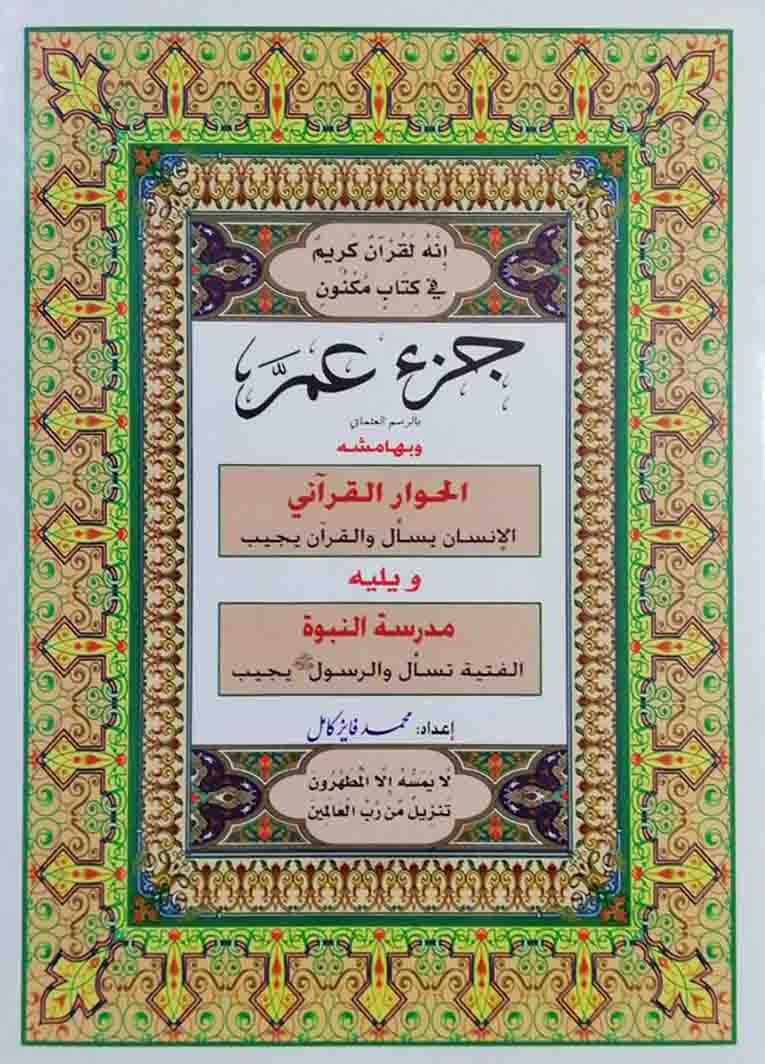 إِنَّهُ لَقُرْآنٌ كَرِيمٌ
فِي كِتَابٍ مَكْنُونٍ
جزء عمَّ
بالرسم العثماني
وبهامشه
الحوار القرآني
الإنسان يسأل والقرآن يجيب
ويليه
مدرسة النبوة
الفتية تسأل والرسول ﷺ يجيب
إعداد: محمد فايز كامل
لَا يَمَسُّهُ إِلَّا الْمُطَهَّرُونَ
تَنْزِيلٌ مِنْ رَبِّ الْعَالَمِينَ